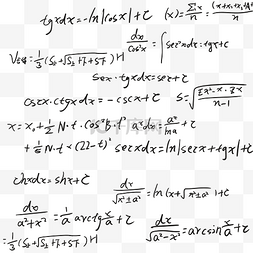 tgxdx=-ln|cosx|+c (x)=Σx/n=(x₁+x₂+x₃
dx/cos²x=∫sec²xdx=tgx+c
=1/3(S₀+√S₂+
Secx·tgxdx=secx+c
cscx·ctgxdx=-cscx+c S=√
n-1
x=x₀+1/2N·t·
aˣdx=aˣ/lna+c
+1/2N·t×(22-t)² secxdx=ln|secx+tgx|+c
chxdx=shx+c dx/√x²±a²=ln(x+√x²±a²)+c
dx/a²+x²=1/a arctg x/a+c dx/√a²-x²=arcsin x/a+c
=1/3(S₀+√S₂+